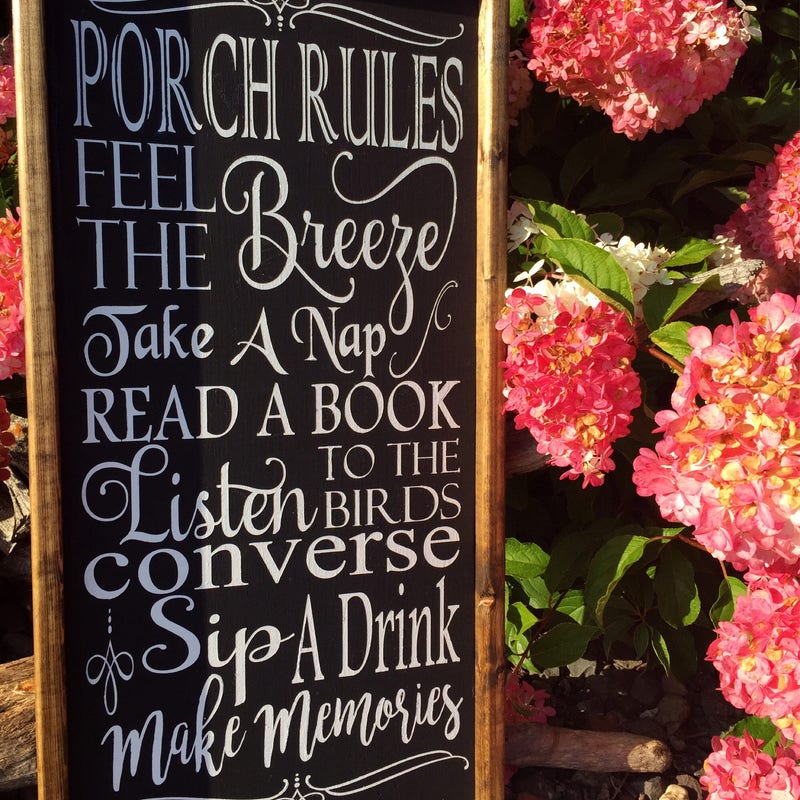 PORCH RULES
FEEL
THE Breeze
Take A Nap
READ A BOOK
Listen TO THE
BIRDS
converse
Sip A Drink
Make Memories